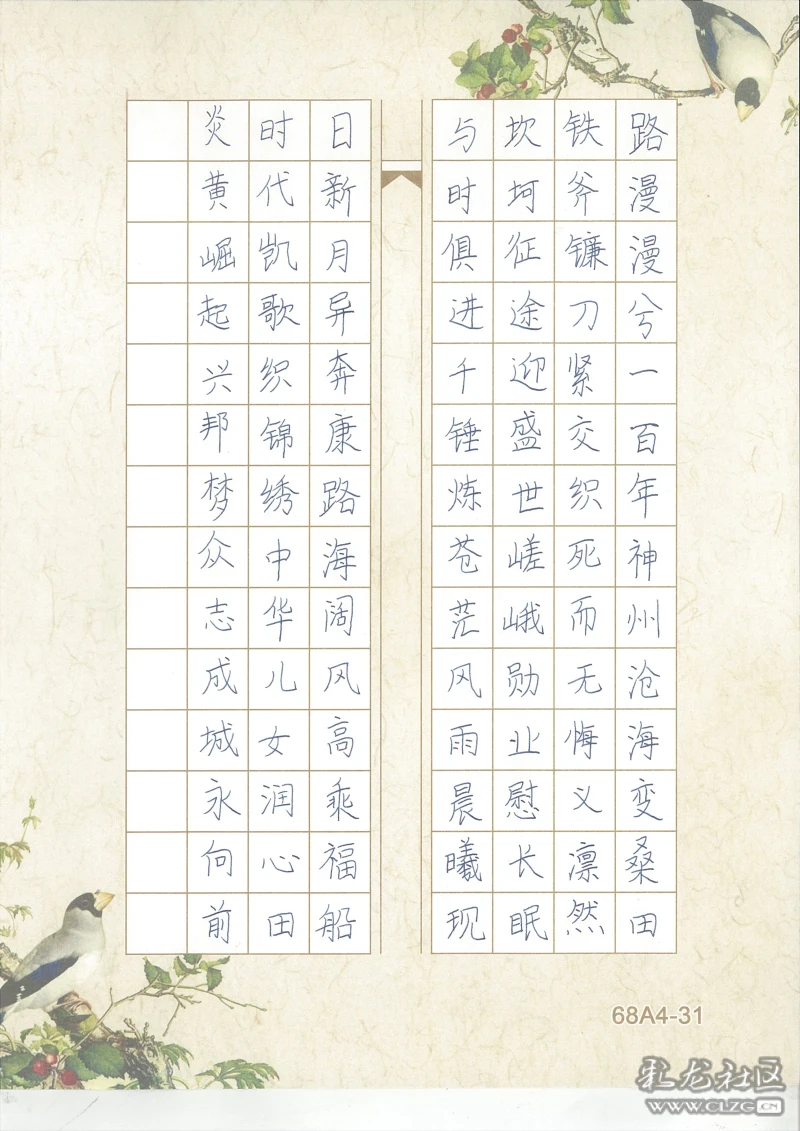 路漫漫兮一百年神州沧海变桑田
铁斧镰刀紧交织死而无悔义凛然
坎坷征途迎盛世嵯峨勋业慰长眠
与时俱进千锤炼苍茫风雨晨曦现
日新月异奔康路海阔风高乘福船
时代凯歌织锦绣中华儿女润心田
炎黄崛起兴邦梦众志成城永向前
68A4-31
私龙社区
www.CLZG.CN